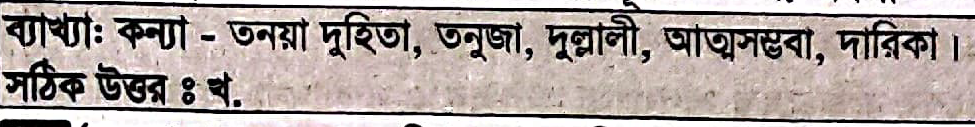 ব্যাখ্যা: কন্যা - তনয়া দুহিতা, তনুজা, দুলালী, আত্মসম্ভবা, দারিকা।
সঠিক উত্তর : খ.